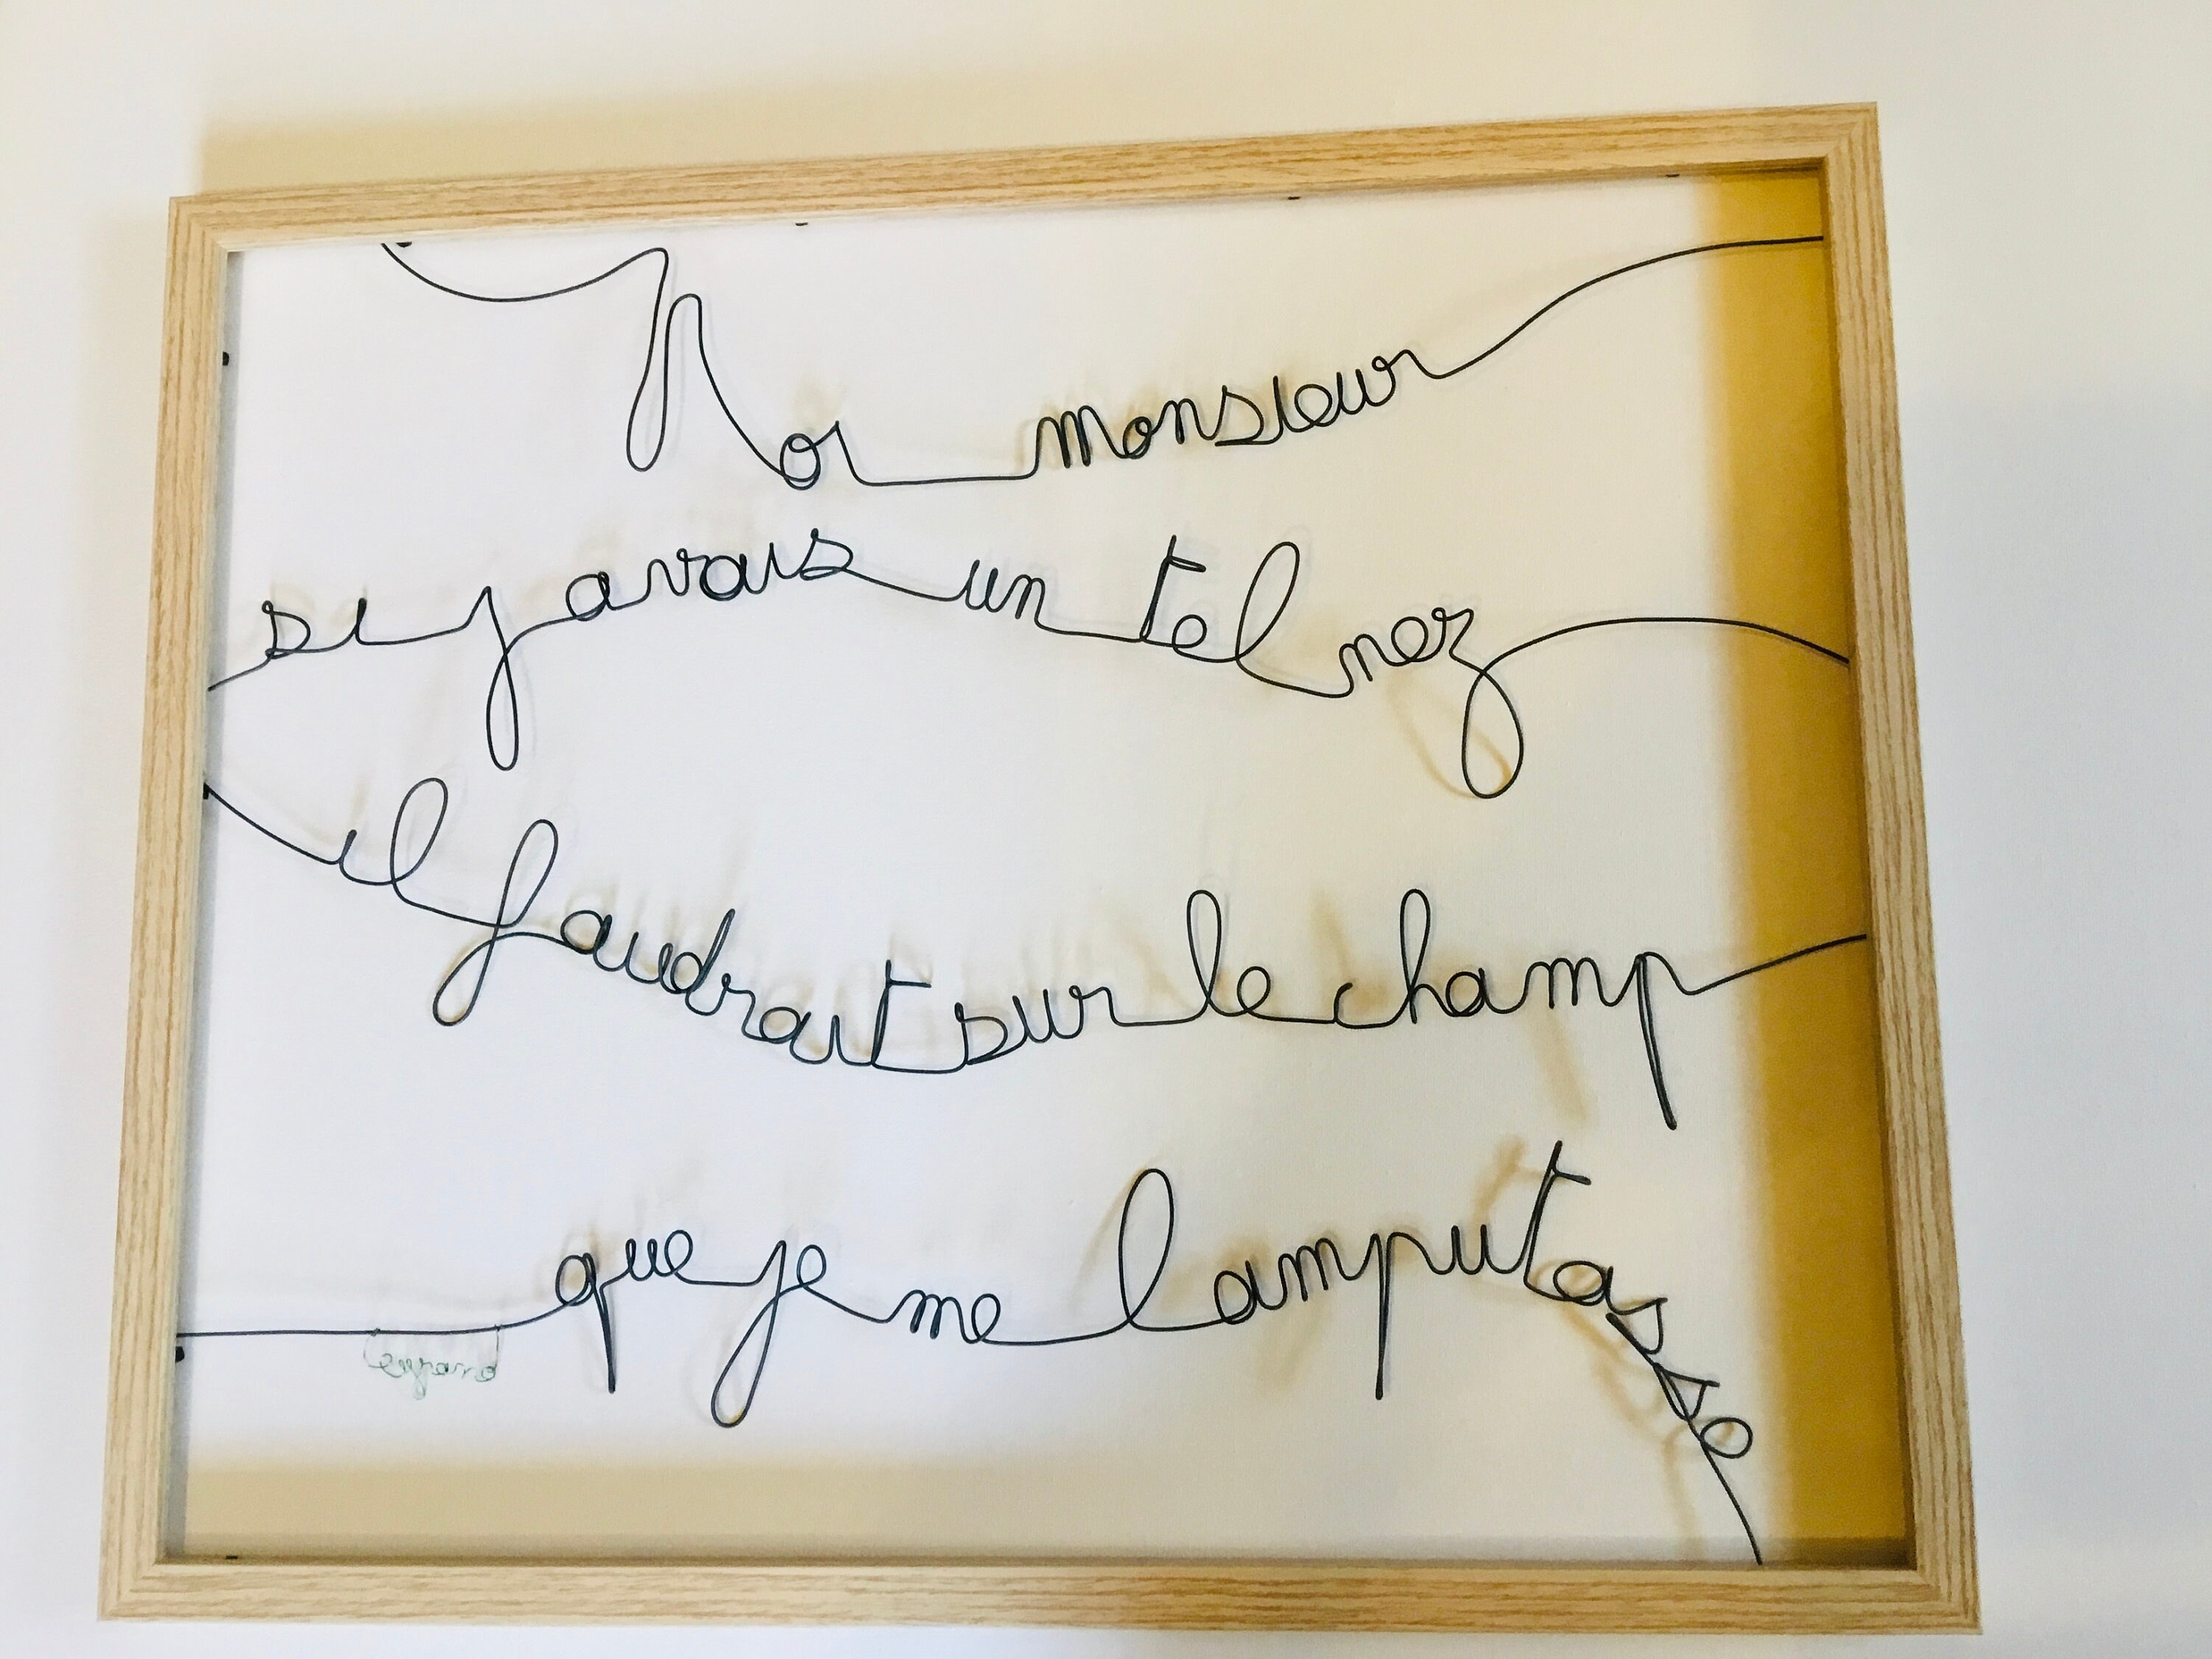 Moi monsieur
si j avais un tel nez
il faudrait sur le champ
que je me l amputasse